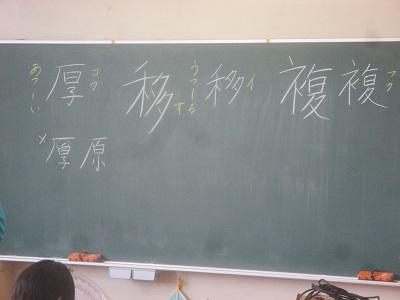 あつ－い
厚
コウ
×厚 原
移
うつ－る
す
移
イ
複複
フク